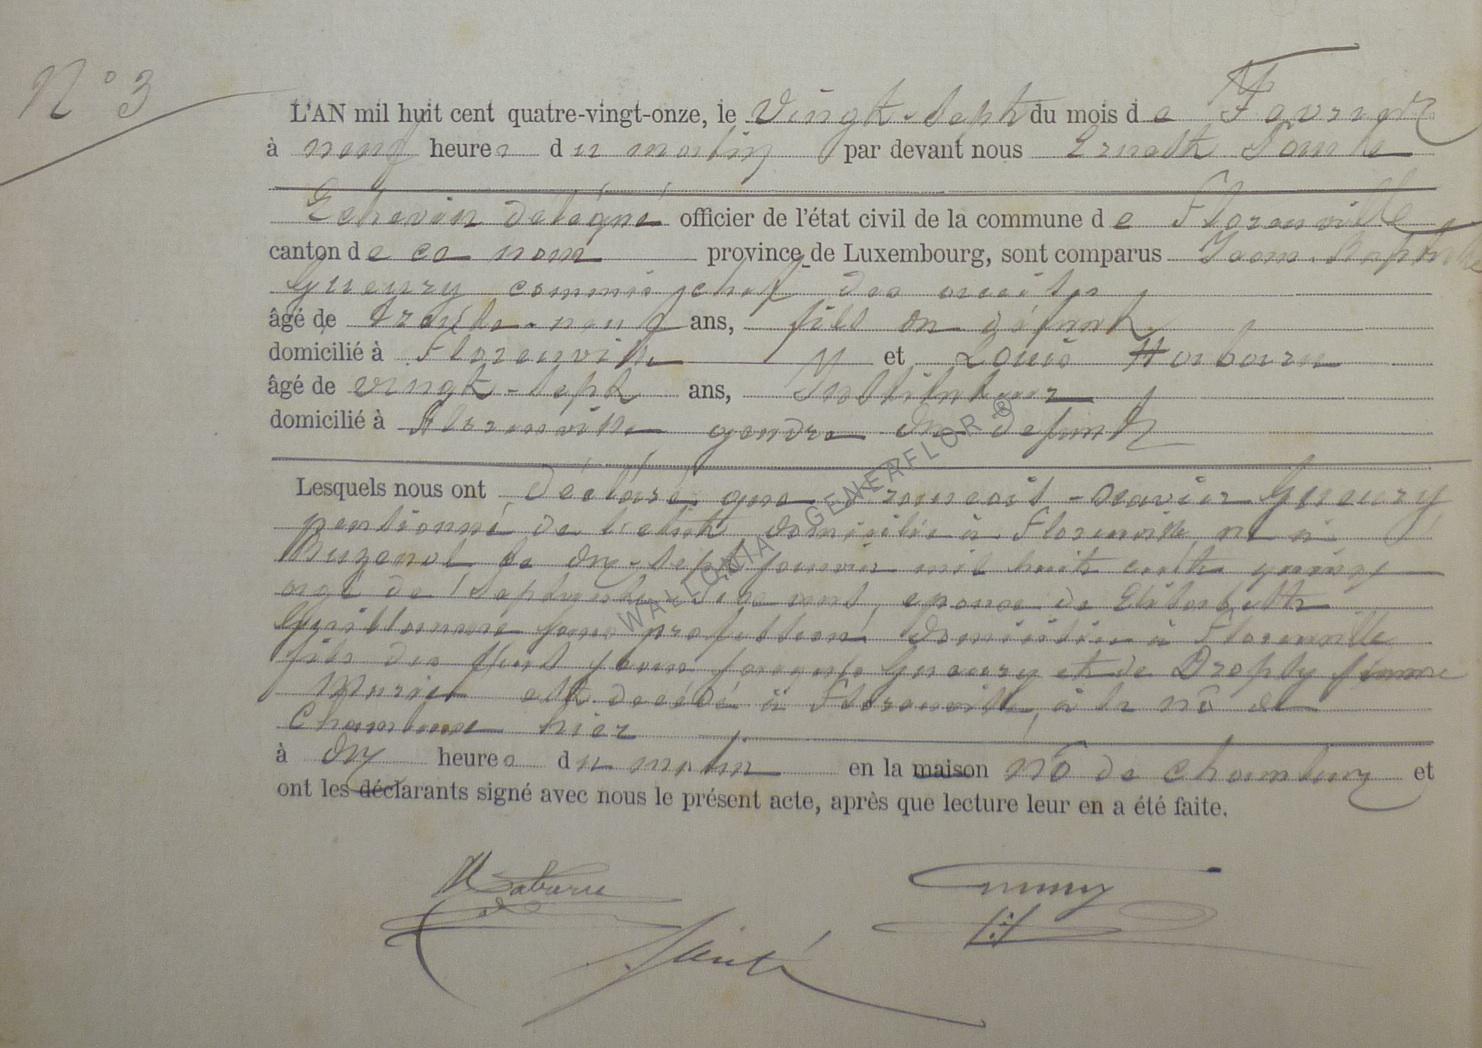 N° 3
L'AN mil huit cent quatre-vingt-onze, le Vingt-Sept du mois de Fevrier
à neuf heures du matin par devant nous Ernest
Echevin délégué officier de l'état civil de la commune de Florenville
canton de ce nom province de Luxembourg, sont comparus Jean-Baptiste
Gueury commis chef des
âgé de trente-neuf ans, fils du défunt
domicilié à Florenville et Louis
âgé de vingt-sept ans, Instituteur
domicilié à Florenville gendre du défunt
Lesquels nous ont déclaré que François-Xavier Gueury
pensionné de l'etat domicilié à Florenville, né à
Buzenol le dix-sept janvier mil huit cent quinze
agé de Septante-Seize ans, epoux de Elisabeth
sans profession domiciliée à Florenville
fils des feus Gueury et de
est décédé à Florenville, à la no de
Chameleux hier
à dix heures du matin en la maison no de chameleux et
ont les déclarants signé avec nous le présent acte, après que lecture leur en a été faite.
WALLONIA GENERFLOR ®
Gueury